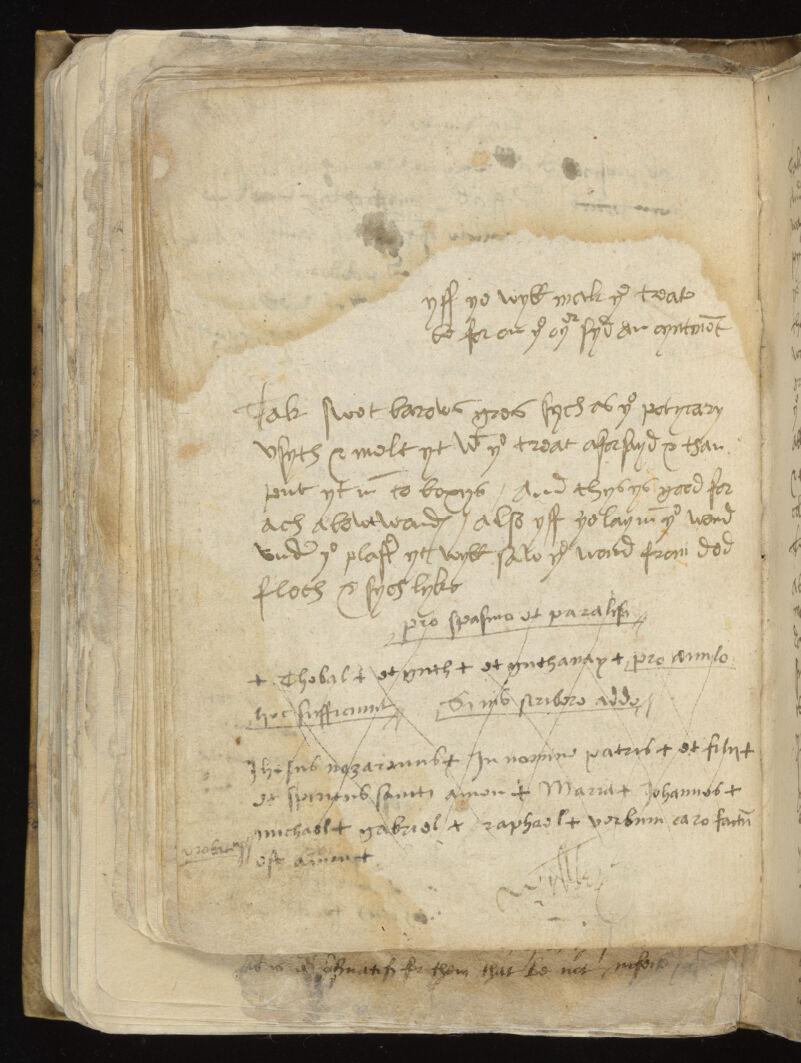 yff ye wyll mak yͤ treat
be for on yͤ oyͬ syd an oyntmēt
Tak swet barows gres sych as yͤ potycary
vsyth & melt yt wͭ yͤ treat aforsayd & than
put yt in to boxys / And thys ys good for
ach a bowt wand / also yff ye lay in yͤ wond
vndͬ yͤ plastͬ yt wyll salv yͤ wond from ded
flech & sych lyke
pro spasmo et paralisi
+ Thebal + et guth + et guthanay + pro anulo
hec sufficiunt Si vis scribere adde
Jhesus nazarenus + In nomine patris + et filij +
et spiritus sancti amen + Maria + Johannes +
michael + gabriel + raphael + verbum caro factū
probatum est amen +
for them that be not